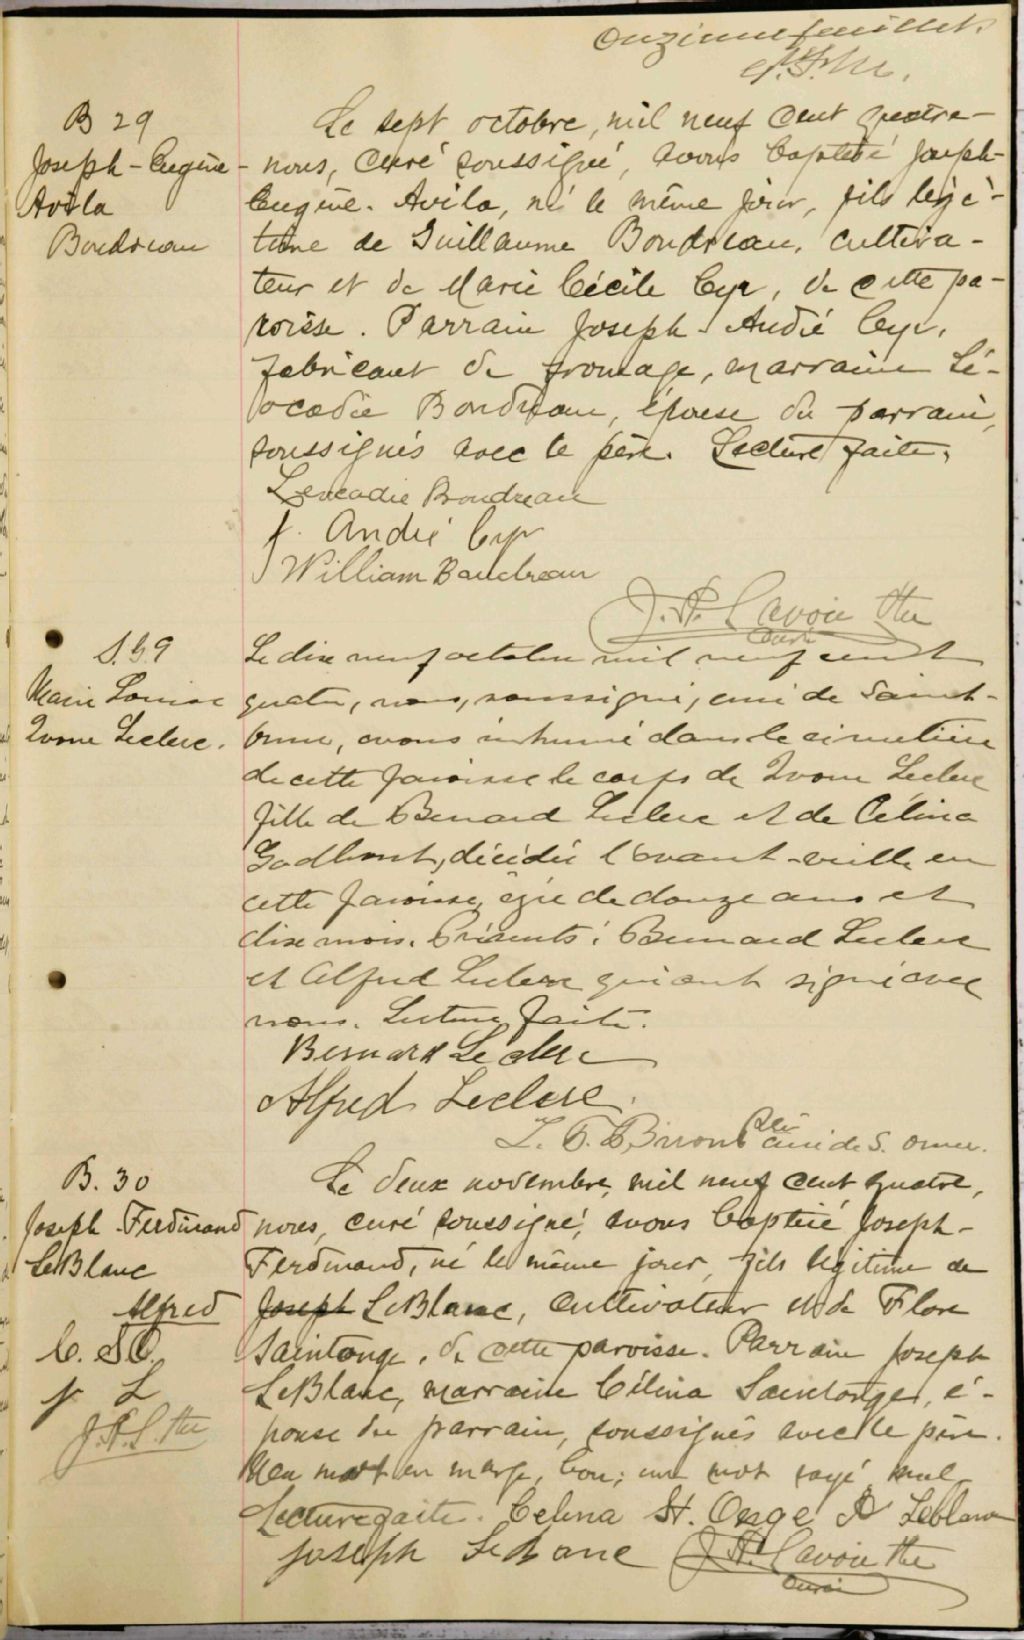 Onzième feuillet.
B 29
Joseph-Eugène-
Avila
Boudreau
Le sept octobre, mil neuf cent quatre-
nous, curé soussigné, avons baptisé Joseph-
Eugène-Avila, né le même jour, fils légi-
time de Guillaume Boudreau, cultiva-
teur et de Marie Cécile Cyr, de cette pa-
roisse. Parrain Joseph-André Cyr,
fabricant de fromage, marraine Lé-
ocadie Boudreau, épouse du parrain,
soussignés avec le père. Lecture faite.
Leocadie Boudreau
J. André Cyr
William Boudreau
J. A. Lavoie Ptre
curé
S. 9
Marie Louise
Yvone Leclerc.
Le dix neuf octobre mil neuf cent
quatre, nous, soussigné, curé de Saint-
Omer, avons inhumé dans le cimetière
de cette paroisse le corps de Yvone Leclerc
fille de Bernard Leclerc et de Célina
Godbout, décédée l'avant-veille en
cette paroisse, âgée de douze ans et
dix mois. Présents: Bernard Leclerc
et Alfred Leclerc qui ont signé avec
nous. Lecture faite.
Bernard Leclerc
Alfred Leclerc.
Ptre curé de S. Omer.
B. 30
Joseph-Ferdinand
LeBlanc
Alfred
C. St O.
J L
J. A. L. Ptre
Le deux novembre, mil neuf cent quatre,
nous, curé soussigné, avons baptisé Joseph-
Ferdinand, né le même jour, fils légitime de
Joseph LeBlanc, cultivateur et de Flore
Saintonge, de cette paroisse. Parrain Joseph
LeBlanc, marraine Célina Saintonge, é-
pouse du parrain, soussignés avec le père.
Un mot en marge, bon; un mot rayé nul
Lecture faite. Celina St. Onge A Leblanc
Joseph Leblanc J. A. Lavoie Ptre
curé